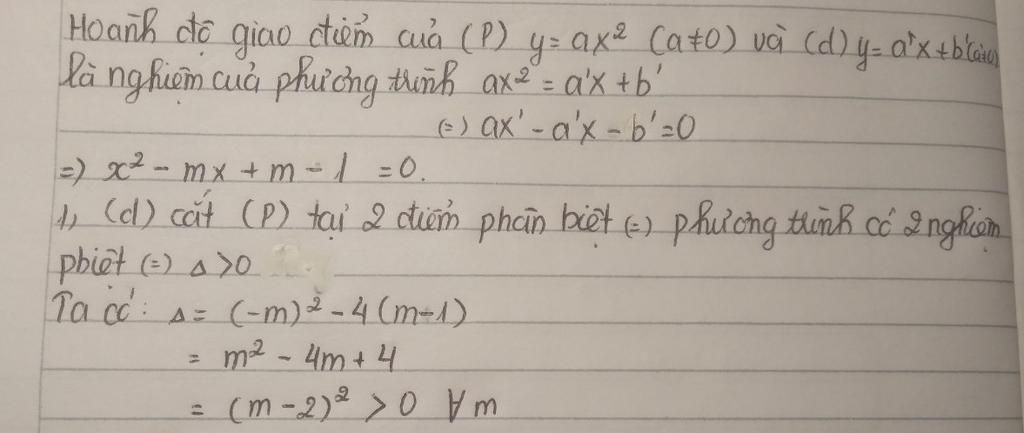 Hoành độ giao điểm của (P) y = ax² (a≠0) và (d) y = a'x + b' (a'≠0)
là nghiệm của phương trình ax² = a'x + b'
(=) ax' - a'x - b' = 0
=) x² - mx + m - 1 = 0.
1, (d) cắt (P) tại 2 điểm phân biệt (=) phương trình có 2 nghiệm
pbiệt (=) Δ > 0
Ta có: Δ = (-m)² - 4(m-1)
= m² - 4m + 4
= (m-2)² > 0 ∀m